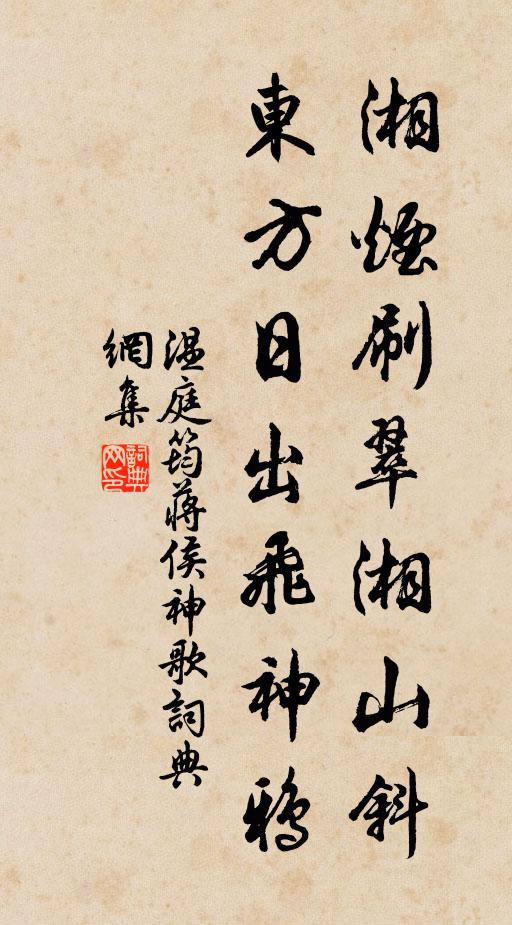 湘煙刷翠湘山斜
東方日出飛神鴉
温庭筠蔣侯神歌詞典
網集
詞典網印